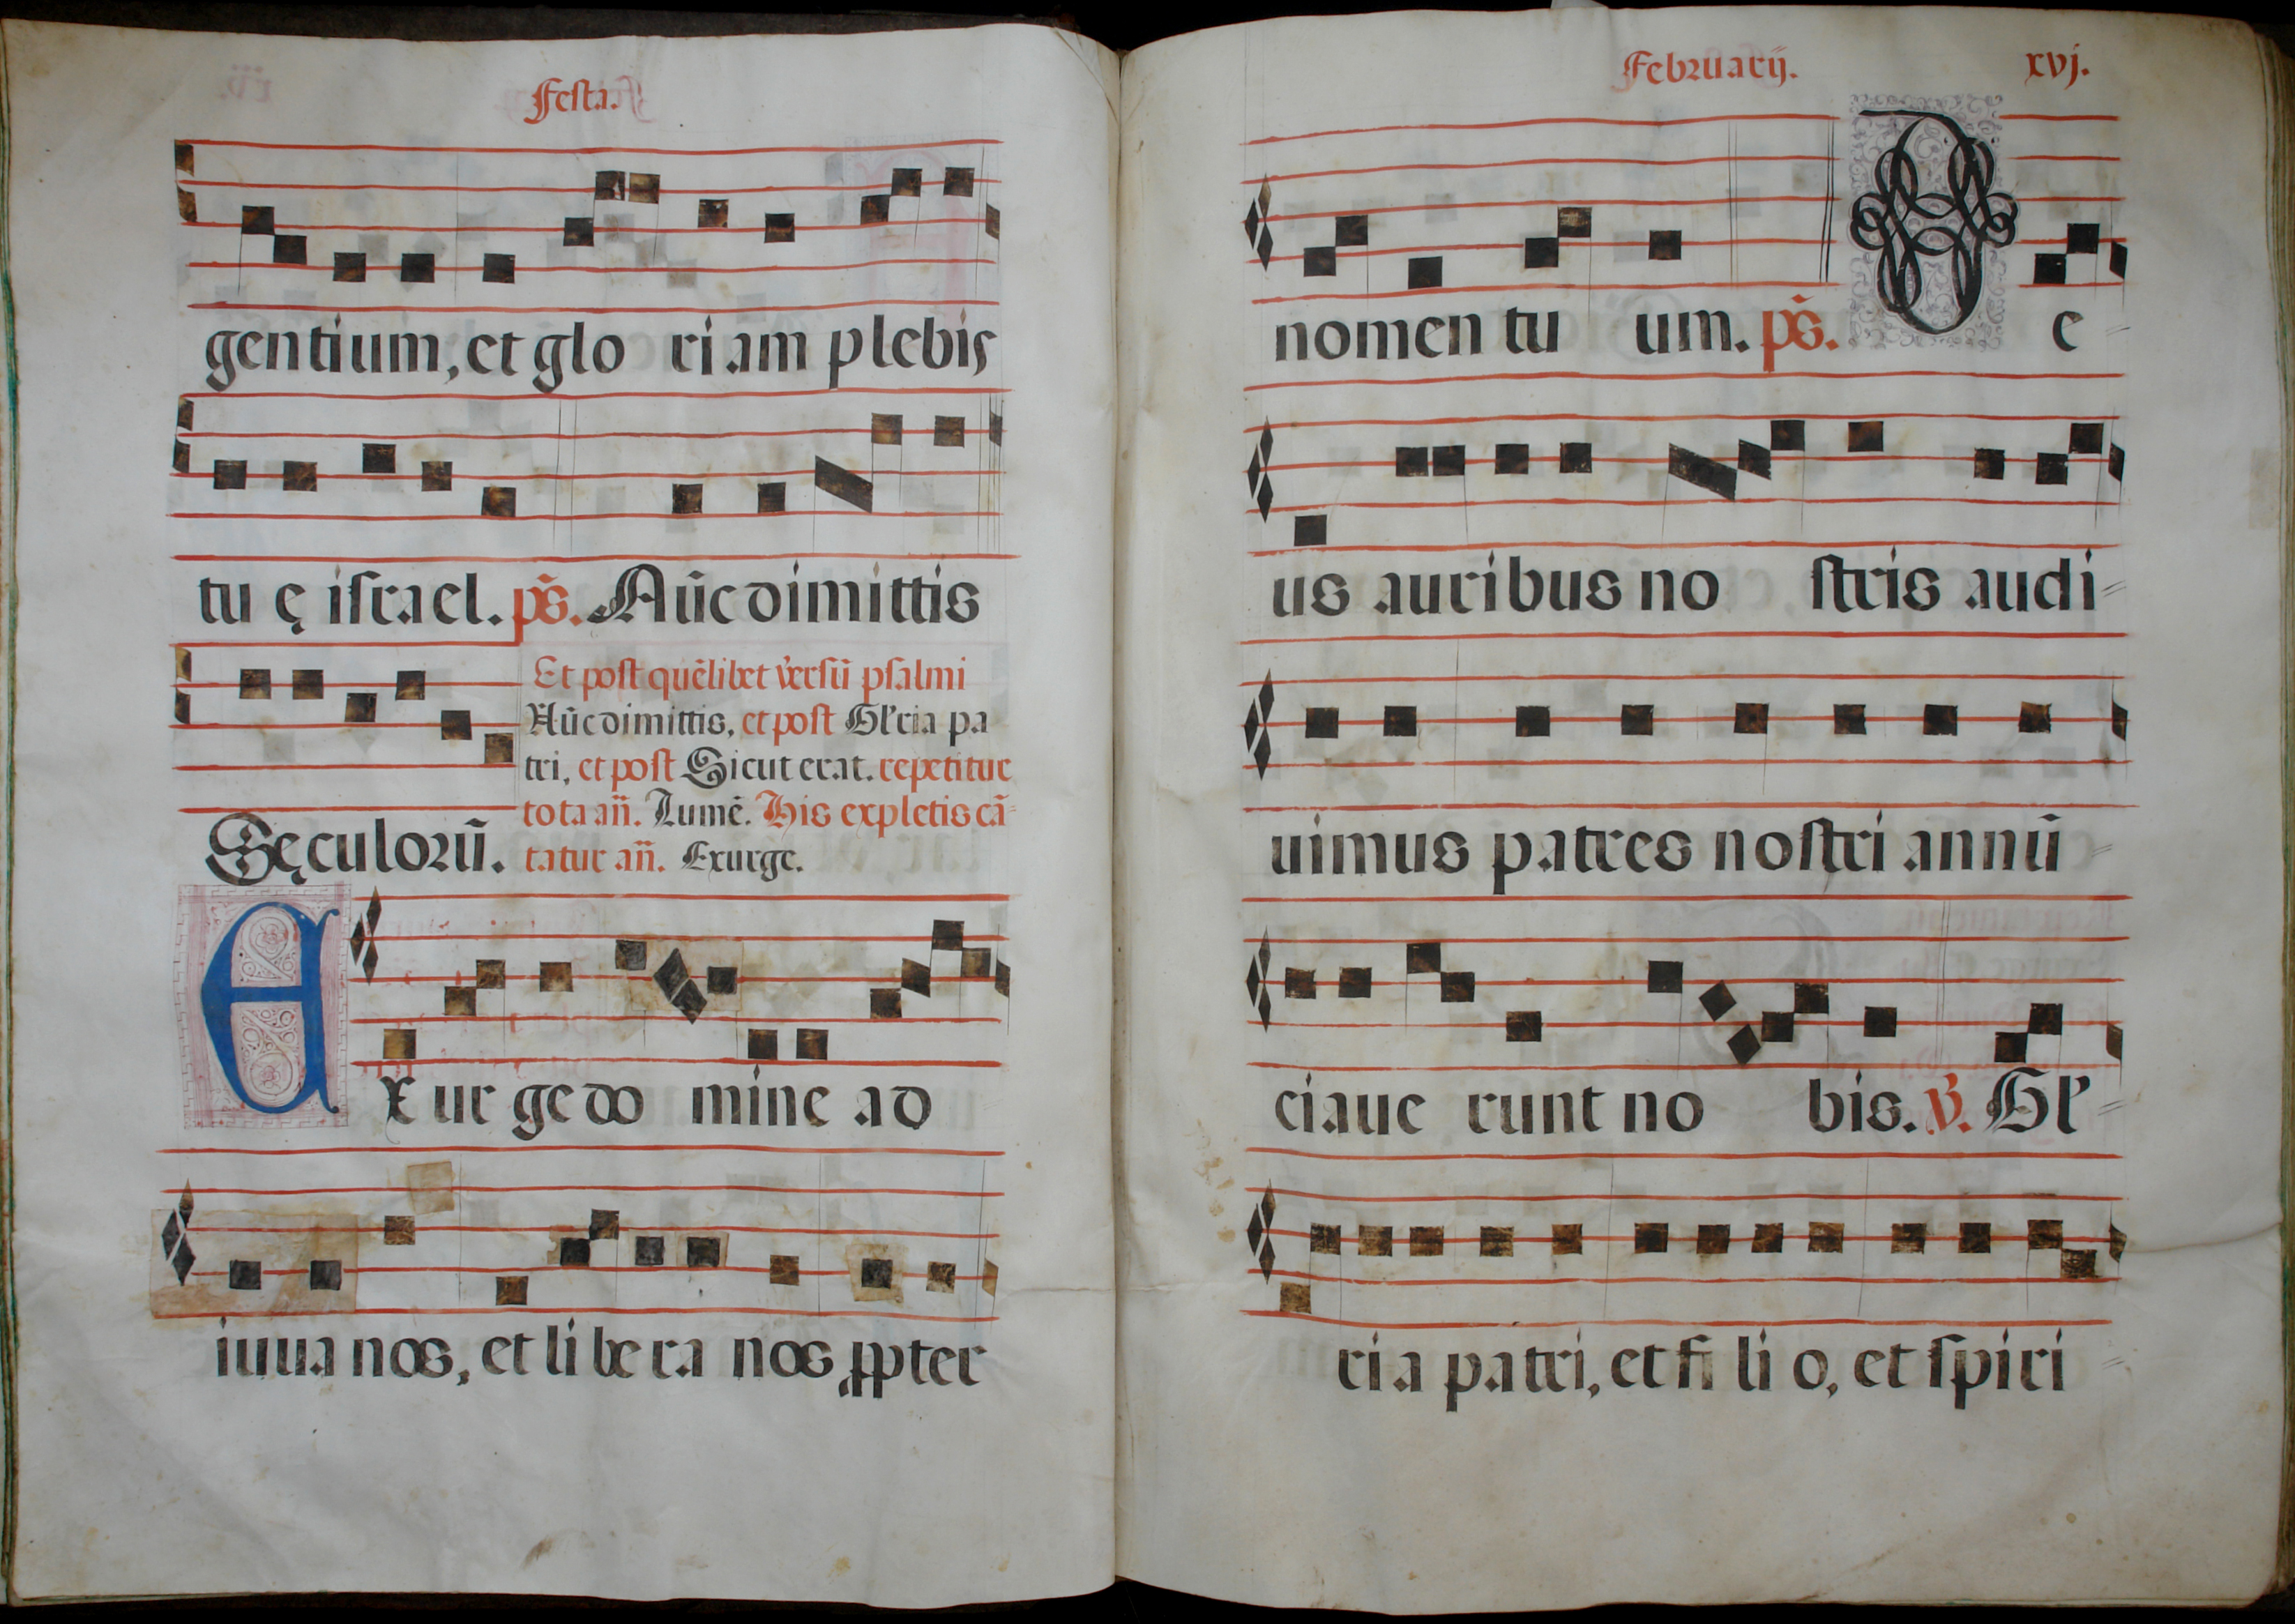 Festa.
gentium, et glo ri am plebis
tu ę israel. ps̄. Nūc dimittis
Et post quēlibet versū psalmi
Nūc dimittis, et post Gl'ria pa
tri, et post Sicut erat. repetitur
tota añ. Lumē. His expletis cā
Sęculorū. tatur añ. Exurge.
Exur ge do mine ad
iuua nos, et li be ra nos ꝓpter
Februarij. xvj.
nomen tu um. ps̄. De
us auribus no stris audi
uimus patres nostri annū
ciaue runt no bis. V. Gl'
ri a patri, et fi li o, et spiri